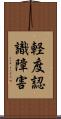 軽度認
識障害